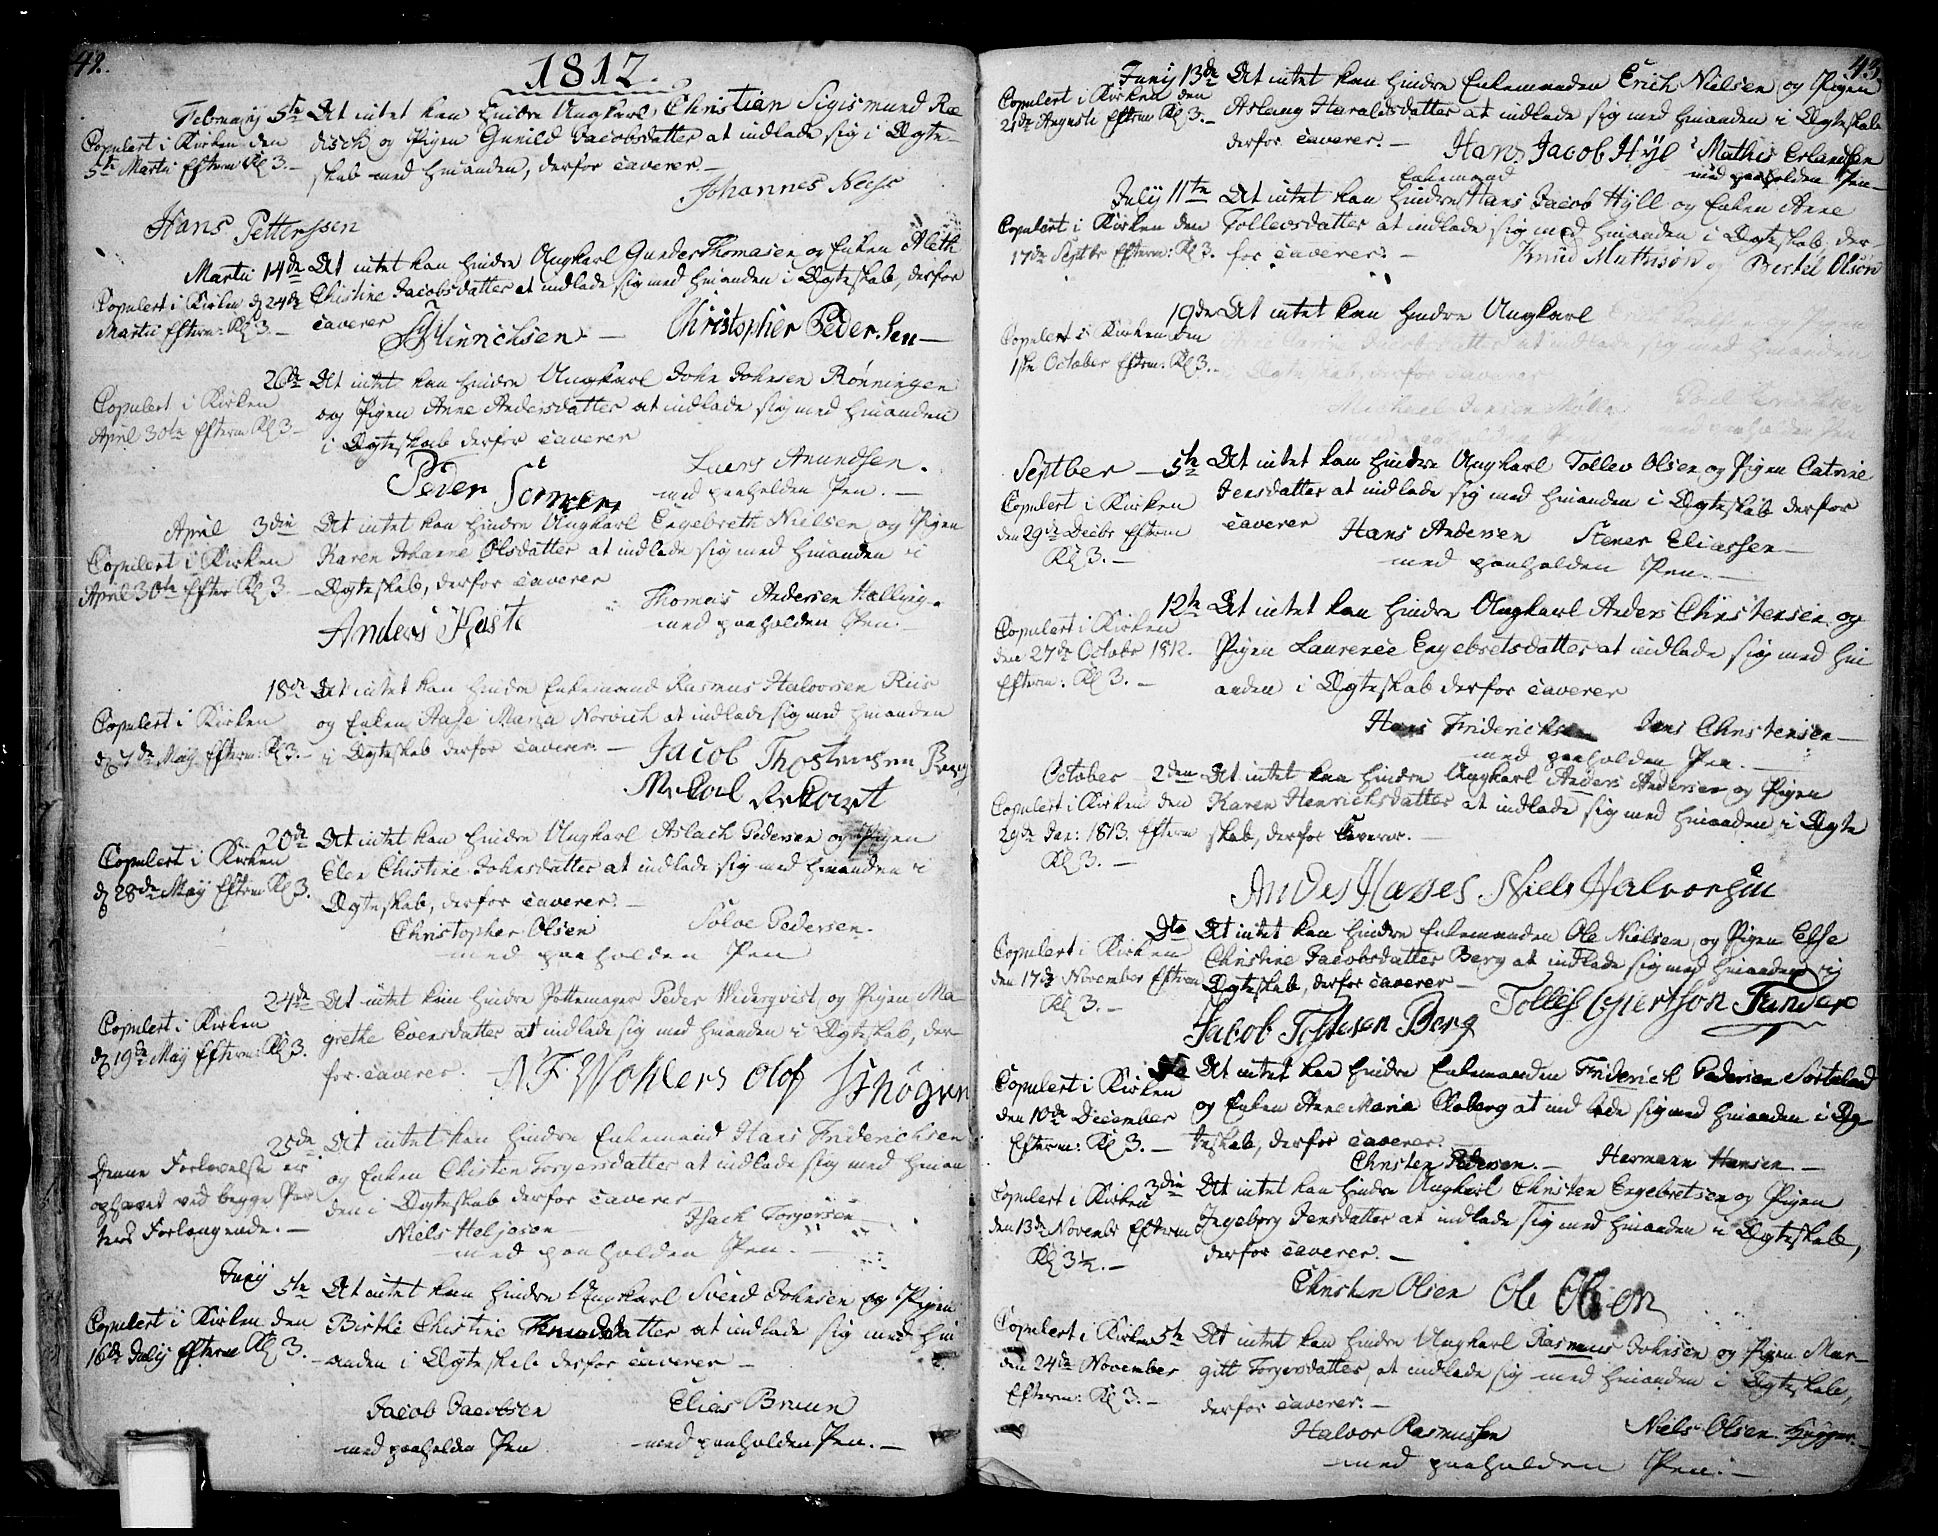 42.
1812.
Februarÿ 5te At intet kan hindre Ungkarl Christian Sigismund Ræ-
disch og Pigen Gunild Jacobsdatter at indlade sig i Ægte-
skab med hinanden, derfor caverer. —
Copulert i Kirken den
5te Martii Efterm Kl 3. —
Johannes
Hans Petterssen
Martii 14de At intet kan hindre Ungkarl Gunder Thomasen og Enken Aleth
Christine Jacobsdatter at indlade sig med hinanden i Ægteskab, derfor
caverer
Copulert i Kirken d 24de
Martii Efterm: Kl 3. —
Hinrichsen — Christopher Pedersen —
26de At intet kan hindre Ungkarl John Johnsen Rønningen
og Pigen Anne Andersdatter at indlade sig med hinanden
i Ægteskab derfor caverer
Copulert i Kirken
April 30te Efterm Kl 3 —
Peder Lars Amundsen.
med paaholden Pen. —
April 3die At intet kan hindre Ungkarl Engebreth Nielsen og Pigen
Karen Johanne Olsdatter at indlade sig med hinanden i
Ægteskab, derfor caverer
Copulert i Kirken
April 30te Efter Kl 3. —
Anders Thomas Andersen Hælling.
med paaholden Pen.
18de At intet kan hindre Enkemand Rasmus Halvorsen Riis
og Enken Aase Maria Norvich at indlade sig med hinanden
i Ægteskab derfor caverer. —
Copulert i Kirken
d 7de Maÿ Efterm: Kl 3. —
Jacob Thostensen Berg
20de At intet kan hindre Ungkarl Aslach Pedersen og Pigen
Elen Christine Johnsdatter at indlade sig med hinanden i
Ægteskab, derfor caverer. —
Copulert i Kirken
d 28de Maÿ Efterm Kl 3.
Christopher Olsen Solve Pedersen.
med paaholden Pen
24de At intet kan hindre Pottemager Peder Widerqvist og Pigen Ma-
grethe Evensdatter at indlade sig med hinanden i Ægteskab, der-
for caverer.
Copulert i Kirken
d 19de Maÿ Efterm: Kl 3.
N F Wohlers Olof
25de At intet kan hindre Enkemand Hans Friderichsen
og Enken Christen Torgersdatter at indlade sig med hinan
den i Ægteskab derfor caverer —
Denne Forlovelse er
ophævet ved begge Par
ters Forlangende. —
Niels Heljesen Isach Torgersen
med paaholden Pen. —
Junÿ 5te At intet kan hindre Ungkarl Svend Johnsen og Pigen
Birthe Christine Knudsdatter at indlade sig med hin
anden i Ægteskab derfor caverer —
Copulert i Kirken den
16de Julÿ Efterm Kl 3. —
Jacob Jacobsen Elias Bruun
med paaholden Pen med paaholden Pen. —
43
Junÿ 13de At intet kan hindre Enkemanden Erich Nielsen og Pigen
Aslaug Haraldsdatter at indlade sig med hinanden i Ægteskab
derfor caverer. —
Copulert i Kirken den
Augusti Efterm Kl 3. —
Hans Jacob Hÿl Mathis Erlandsen
med paaholden Pen —
Enkemand
Julÿ 11te At intet kan hindre Hans Jacob Hÿll og Enken Anne
Tollevsdatter at indlade sig med hinanden i Ægteskab, der-
for caverer. —
Copulert i Kirken den
17de Septbr Efterm: Kl 3.
Knud Mathison og Bertel Olson
19de At intet kan hindre Ungkarl Pigen
Jacobsdatter at indlade sig med hinanden
i Ægteskab, derfor caverer
Copulert i Kirken den
1ste October Efterm: Kl 3. —
Michael Jensen Møller
med paaholden Pen med paaholden Pen
Septber — 5te At intet kan hindre Ungkarl Tollev Olsen og Pigen Catrine
Jensdatter at indlade sig med hinanden i Ægteskab derfor
caverer
Copulert i Kirken
den 29de Decbr Efterm
Kl 3. —
Hans Andersen Stener Eliassen —
med paaholden Pen. —
12te At intet kan hindre Ungkarl Anders Christensen og
Pigen Laurence Engebretsdatter at indlade sig med hin
anden i Ægteskab derfor caverer
Copulert i Kirken
den 27de Octobr 1812.
Efterm: Kl 3. —
Hans Friderichsen Jens Christensen —
med paaholden Pen. —
October — 2den At intet kan hindre Ungkarl Anders Andersen og Pigen
Karen Henrichsdatter at indlade sig med hinanden i Ægte
skab, derfor caverer. —
Copulert i Kirken den
29de Jan: 1813. Efterm
Kl 3. —
Andes Hages Niels Halvorsen
Dto At intet kan hindre Enkemanden Ole Nielsen og Pigen Else
Christine Jacobsdatter Berg at indlade sig med hinanden i
Ægteskab, derfor caverer —
Copulert i Kirken
den 17de November Efterm
Kl 3. —
Jacob Berg Tollef
At intet kan hindre Enkemanden Friderich Pedersen Sørteland
og Enken Anne Maria Cloberg at ind lade sig med hinanden i Æg
teskab, derfor caverer.
Copulert i Kirken
den 10de December
Efterm: Kl 3. —
Christen Pedersen. — Hermann Hansen. —
3die At intet kan hindre Ungkarl Christen Engebretsen og Pigen
Ingeborg Jensdatter at indlade sig med hinanden i Ægteskab,
derfor caverer. —
Copulert i Kirken
den 13de Novembr Efterm
Kl 3½. —
Christen Olsen Ole Olsen
5te At intet kan hindre Ungkarl Rasmus Johnsen og Pigen Mar-
gitt Torgersdatter, at indlade sig med hinanden i Ægteskab,
derfor caverer. —
Copulert i Kirken
den 24de November
Efterm: Kl 3. —
Halvor Rasmussen Niels Olsen
med paaholden Pen. —